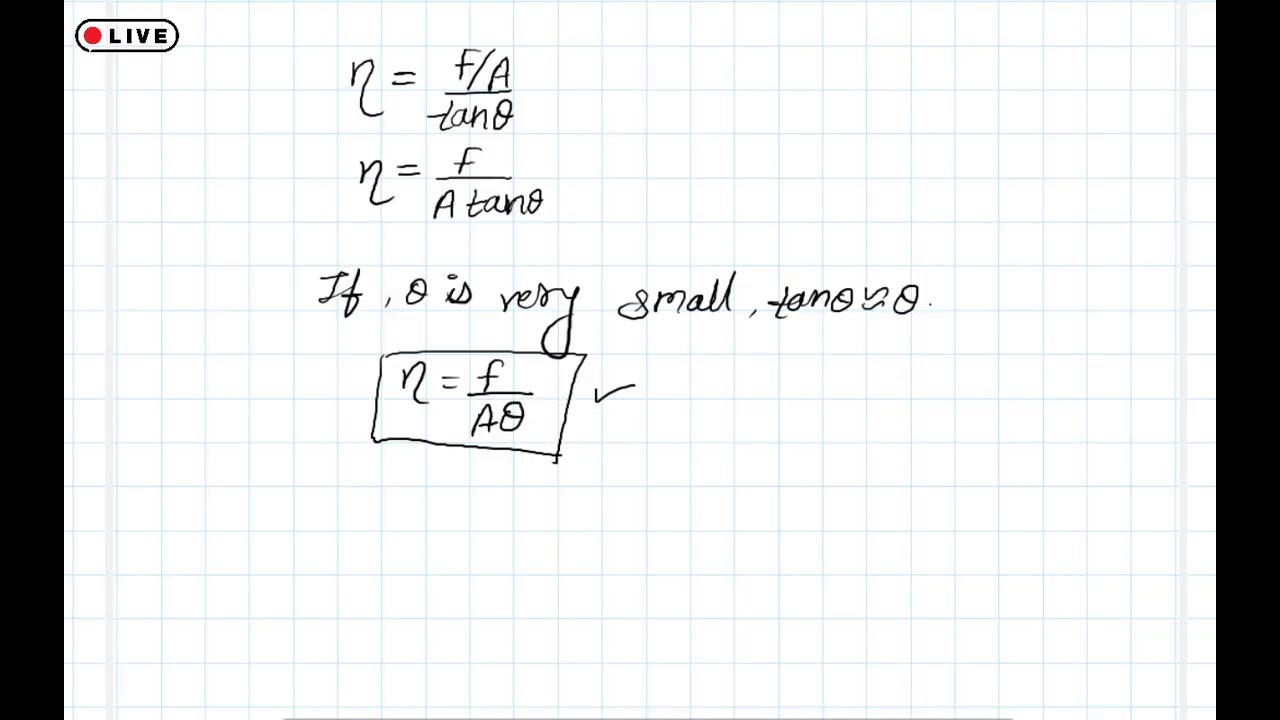 LIVE
η = F/A / tanθ
η = F / A tanθ
If, θ is very small, tanθ ≈ θ.
η = f / Aθ ✓